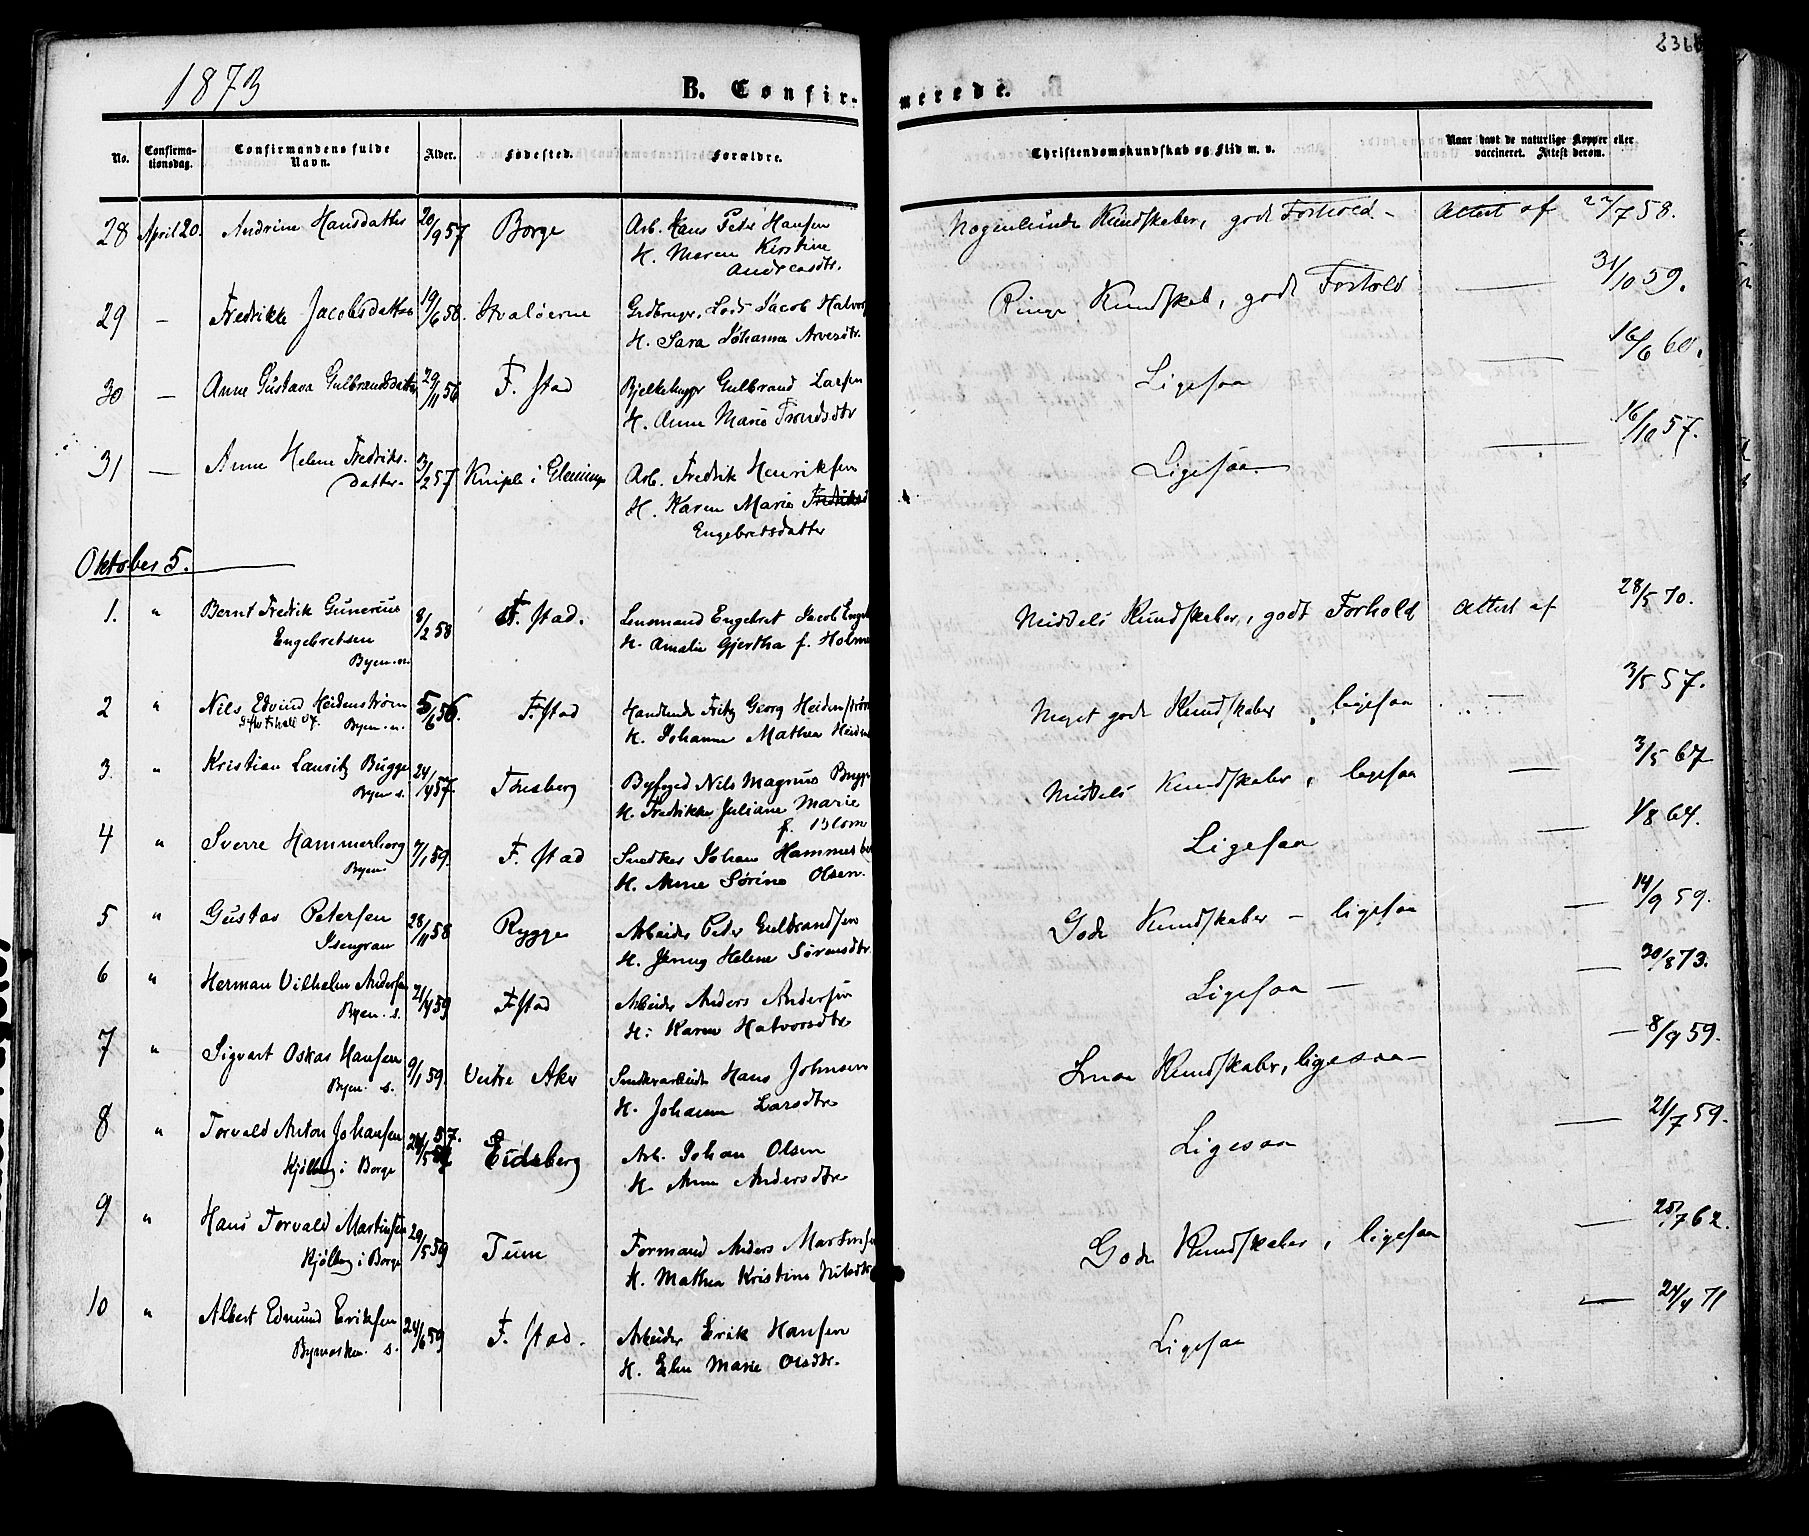 1873
B. Confir-
merede.
No.
Confirma-
tionsdag.
Confirmandens fulde
Navn.
Alder.
Fødested.
Forældre.
Christendomskundskab og Flid m. v.
Naar havt de naturlige Kopper eller
vaccineret. Attest derom.
28 April 20. Andrine Hansdatter 20/9 57 Borge Arb. Hans Peter Hansen
H. Maren Kirstine
Andreasdtr.
Nogenlunde Kundskaber, godt Forhold - Attest af 22/7 58.
29 — Fredrikke Jacobsdatter 19/6 58. Hvaløerne Grdbruger, Lods Jacob Halvors
H. Sara Johanna Arvesdtr.
Ringe Kundskab, godt Forhold — 31/10 59.
30 — Anne Gustava Gulbrandsdatter 29/11 56 F. stad Bjelkehugger Gulbrand Larsen
H. Anne Marie Trondsdtr
Ligesaa — 16/6 60.
31 — Anne Helene Fredriks-
datter. 3/2 57 Kniple i Glemminge Arb. Fredrik Henriksen
H. Karen Marie
Engebretsdatter
Ligesaa — 16/10 57.
Oktober 5.
1. " Bernt Fredrik Gunerius
Engebretsen
Byen. n. 8/2 58 F. stad. Lensmand Engebret Jacob Enge
H. Amalie Gjertha f. Holm
Middels Kundskaber, godt Forhold Attest af 28/5 70.
2 " Nils Edvind Heidenstrøm
Byen. n. 5/6 56. F. stad Handlende Fritz Georg Heidenstrøm
H. Johanne Mathea Heiden
Meget gode Kundskaber, ligesaa — 3/5 57.
3. " Kristian Lauritz Bugge
Byen s. 24/4 57. Tønsberg Byfoged Nils Magnus Bugge
H. Fredrikke Juliane Marie
f. Blom
Middels Kundskaber, ligesaa — 3/5 67
4 " Sverre Hammerborg
Byen. 7/1 59. F. stad Snedker Johan Hammerbo
H. Anne Sørine Olsen.
Ligesaa — 1/8 64.
5 " Gustav Petersen
Isengran 28/11 58 Rygge Arbeider Peder Gulbrandsen
H. Jenny Helene Sørensdtr
Gode Kundskaber - ligesaa — 14/9 59.
6 " Herman Vilhelm Andersen
Byen. s. 21/4 59 F. stad Arbeider Anders Andersen
H. Karen Halvorsdtr
Ligesaa — 30/8 73.
7 " Sigvart Oskar Hansen
Byen. s. 9/1 59. Vestre Aker Snedkerarbeider Hans Johnsen
H. Johanne Larsdtr
Smaa Kundskaber, ligesaa — 8/9 59.
8 " Torvald Anton Johansen
Kjølberg i Borge 57. Eidsberg Arb. Johan Olsen
H. Anne Andersdtr
Ligesaa — 21/7 59.
9 " Hans Torvald Martinsen
Kjølberg i Borge 29/5 59 Tune Formand Anders Martinsen
H. Mathea Kristine Nilsdtr
Gode Kundskaber, ligesaa — 25/7 62.
10 " Albert Edmund Eriksen
Bymarken. s. 24/6 59 F. stad. Arbeider Erik Hansen
H. Elen Marie Olsdtr.
Ligesaa — 24/4 71